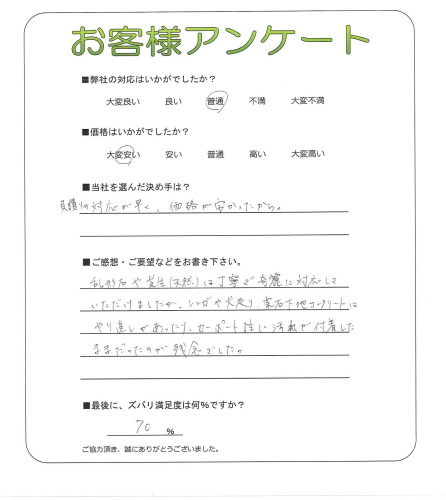 お客様アンケート
■弊社の対応はいかがでしたか？
大変良い 良い 普通 不満 大変不満
■価格はいかがでしたか？
大変安い 安い 普通 高い 大変高い
■当社を選んだ決め手は？
見積りの対応が早く、価格が安かったから。
■ご感想・ご要望などをお書き下さい。
乱形石や芝生(天然)は丁寧で綺麗に対応して
いただけましたが、レンガや犬走り、下地コンクリートは
やり直しがあったり、カーポート柱に汚れが付着した
ままだったのが残念でした。
■最後に、ズバリ満足度は何%ですか？
70 %
ご協力頂き、誠にありがとうございました。